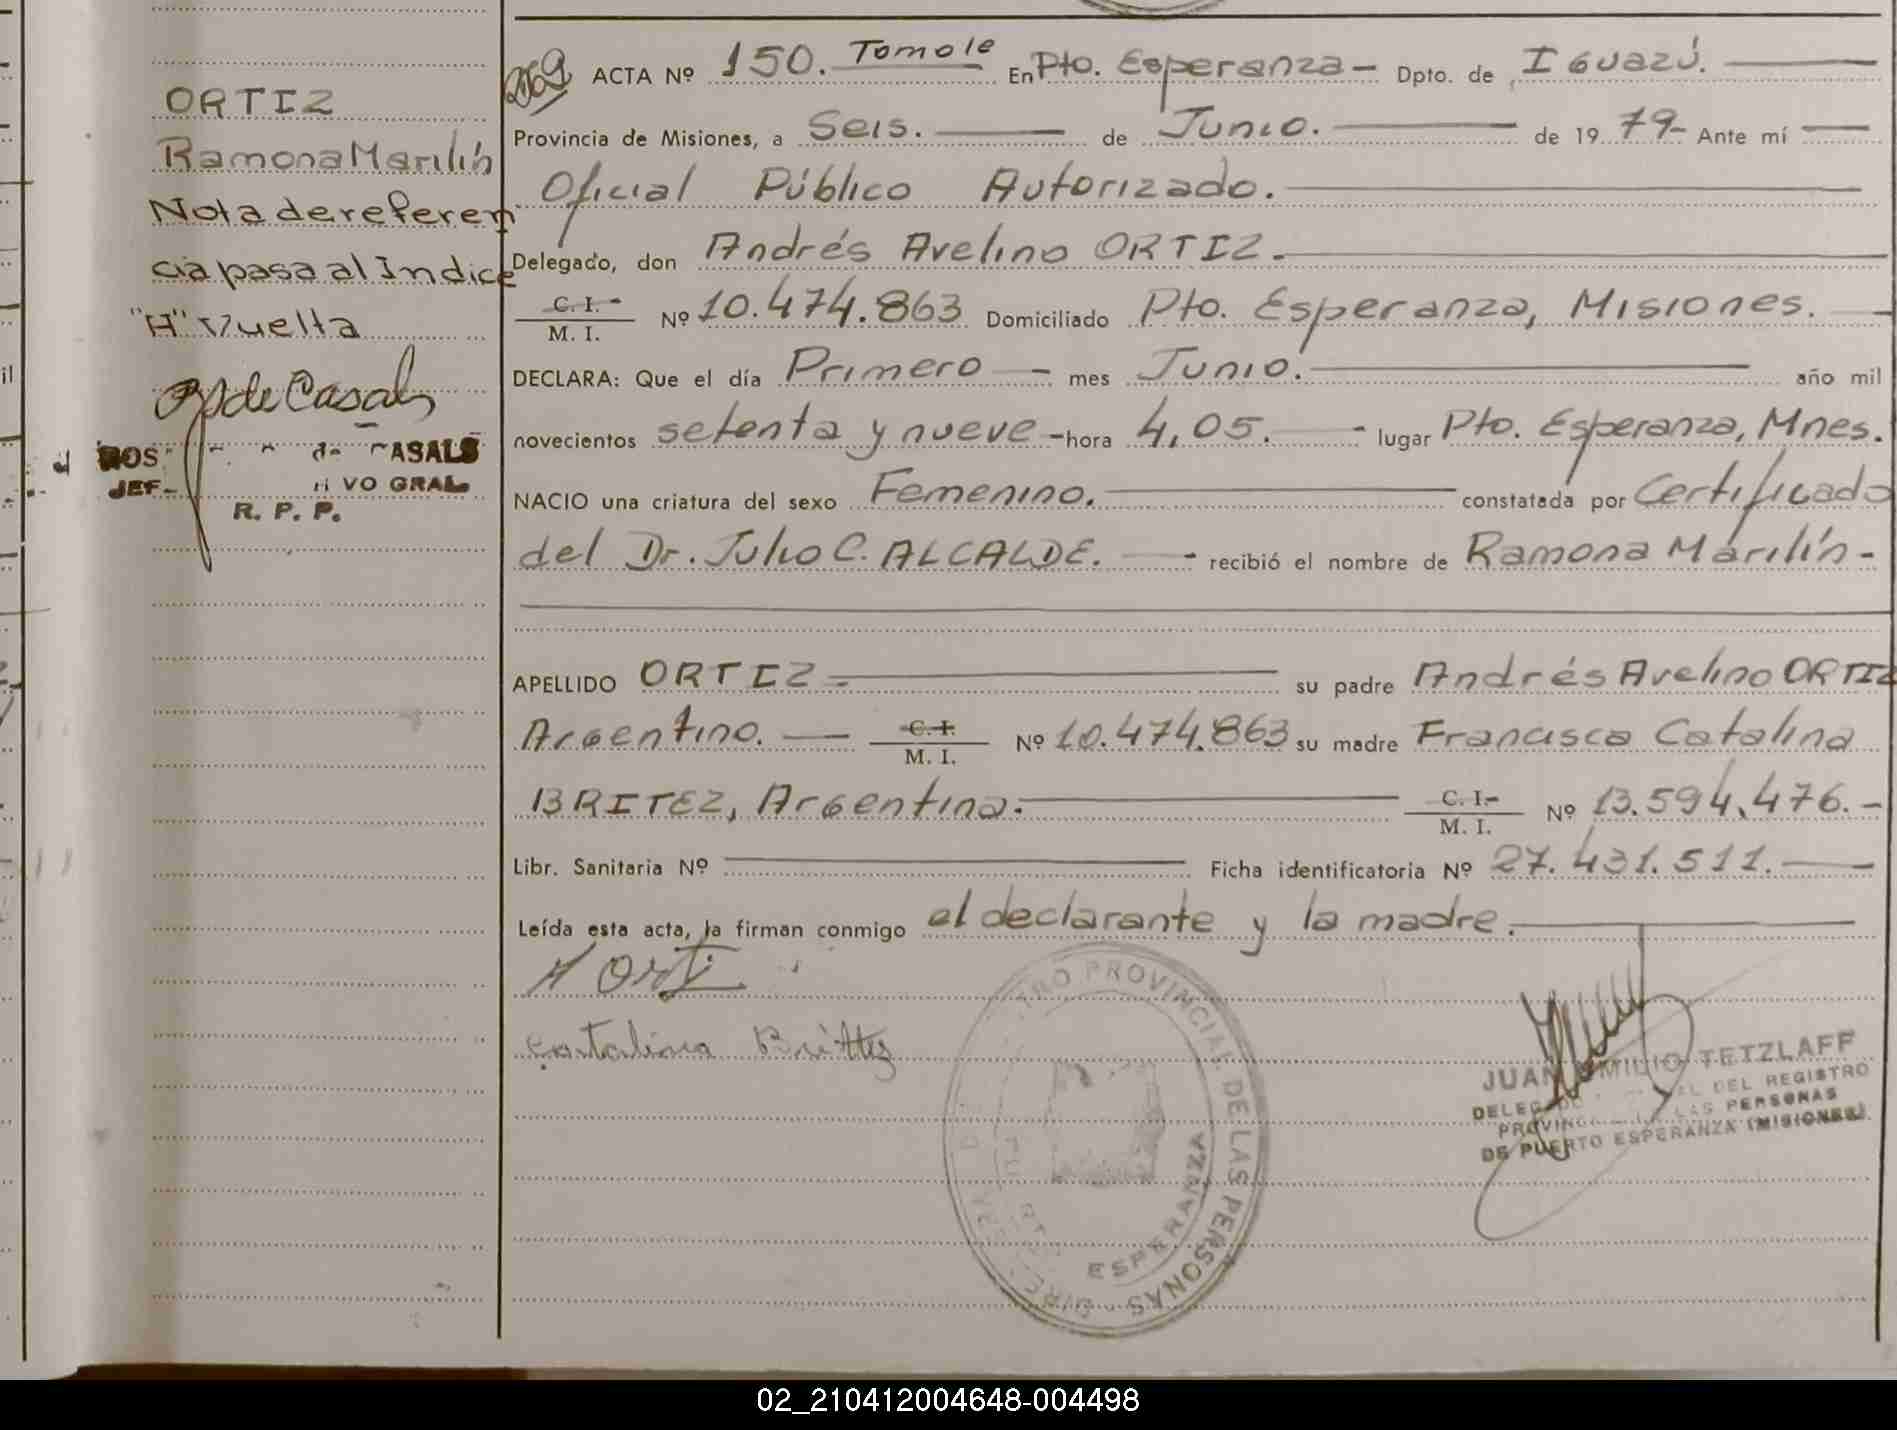 ORTIZ
Ramona Marilín
Nota de referen
cia pasa al Indice
"H" Vuelta
de Casals
CASALS
JEF VO GRAL.
R. P. P.
269 ACTA Nº 150. Tomo 1e En Pto. Esperanza - Dpto. de Iguazú.
Provincia de Misiones, a Seis. de Junio. de 19 79- Ante mí
Oficial Público Autorizado.
Delegado, don Andrés Avelino ORTIZ.
C. I.
M. I. Nº 10.474.863 Domiciliado Pto. Esperanza, Misiones.
DECLARA: Que el día Primero - mes Junio. año mil
novecientos setenta y nueve - hora 4,05. - lugar Pto. Esperanza, Mnes.
NACIO una criatura del sexo Femenino. constatada por Certificado
del Dr. Julio C. ALCALDE. - recibió el nombre de Ramona Marilín -
APELLIDO ORTIZ su padre Andrés Avelino ORTIZ
Argentino. C. I.
M. I. Nº 10.474.863 su madre Francisca Catalina
BRITEZ, Argentina. C. I.
M. I. Nº 13.594.476. -
Libr. Sanitaria Nº Ficha identificatoria Nº 27.431.511.
Leída esta acta, la firman conmigo el declarante y la madre.
A Orti
Catalina Brittez
PROVINCIAL DE LAS PERSONAS
ESPERANZA
JUAN EMILIO TETZLAFF
DEL REGISTRO
LAS PERSONAS
DE PUERTO ESPERANZA (MISIONES)
02_210412004648-004498